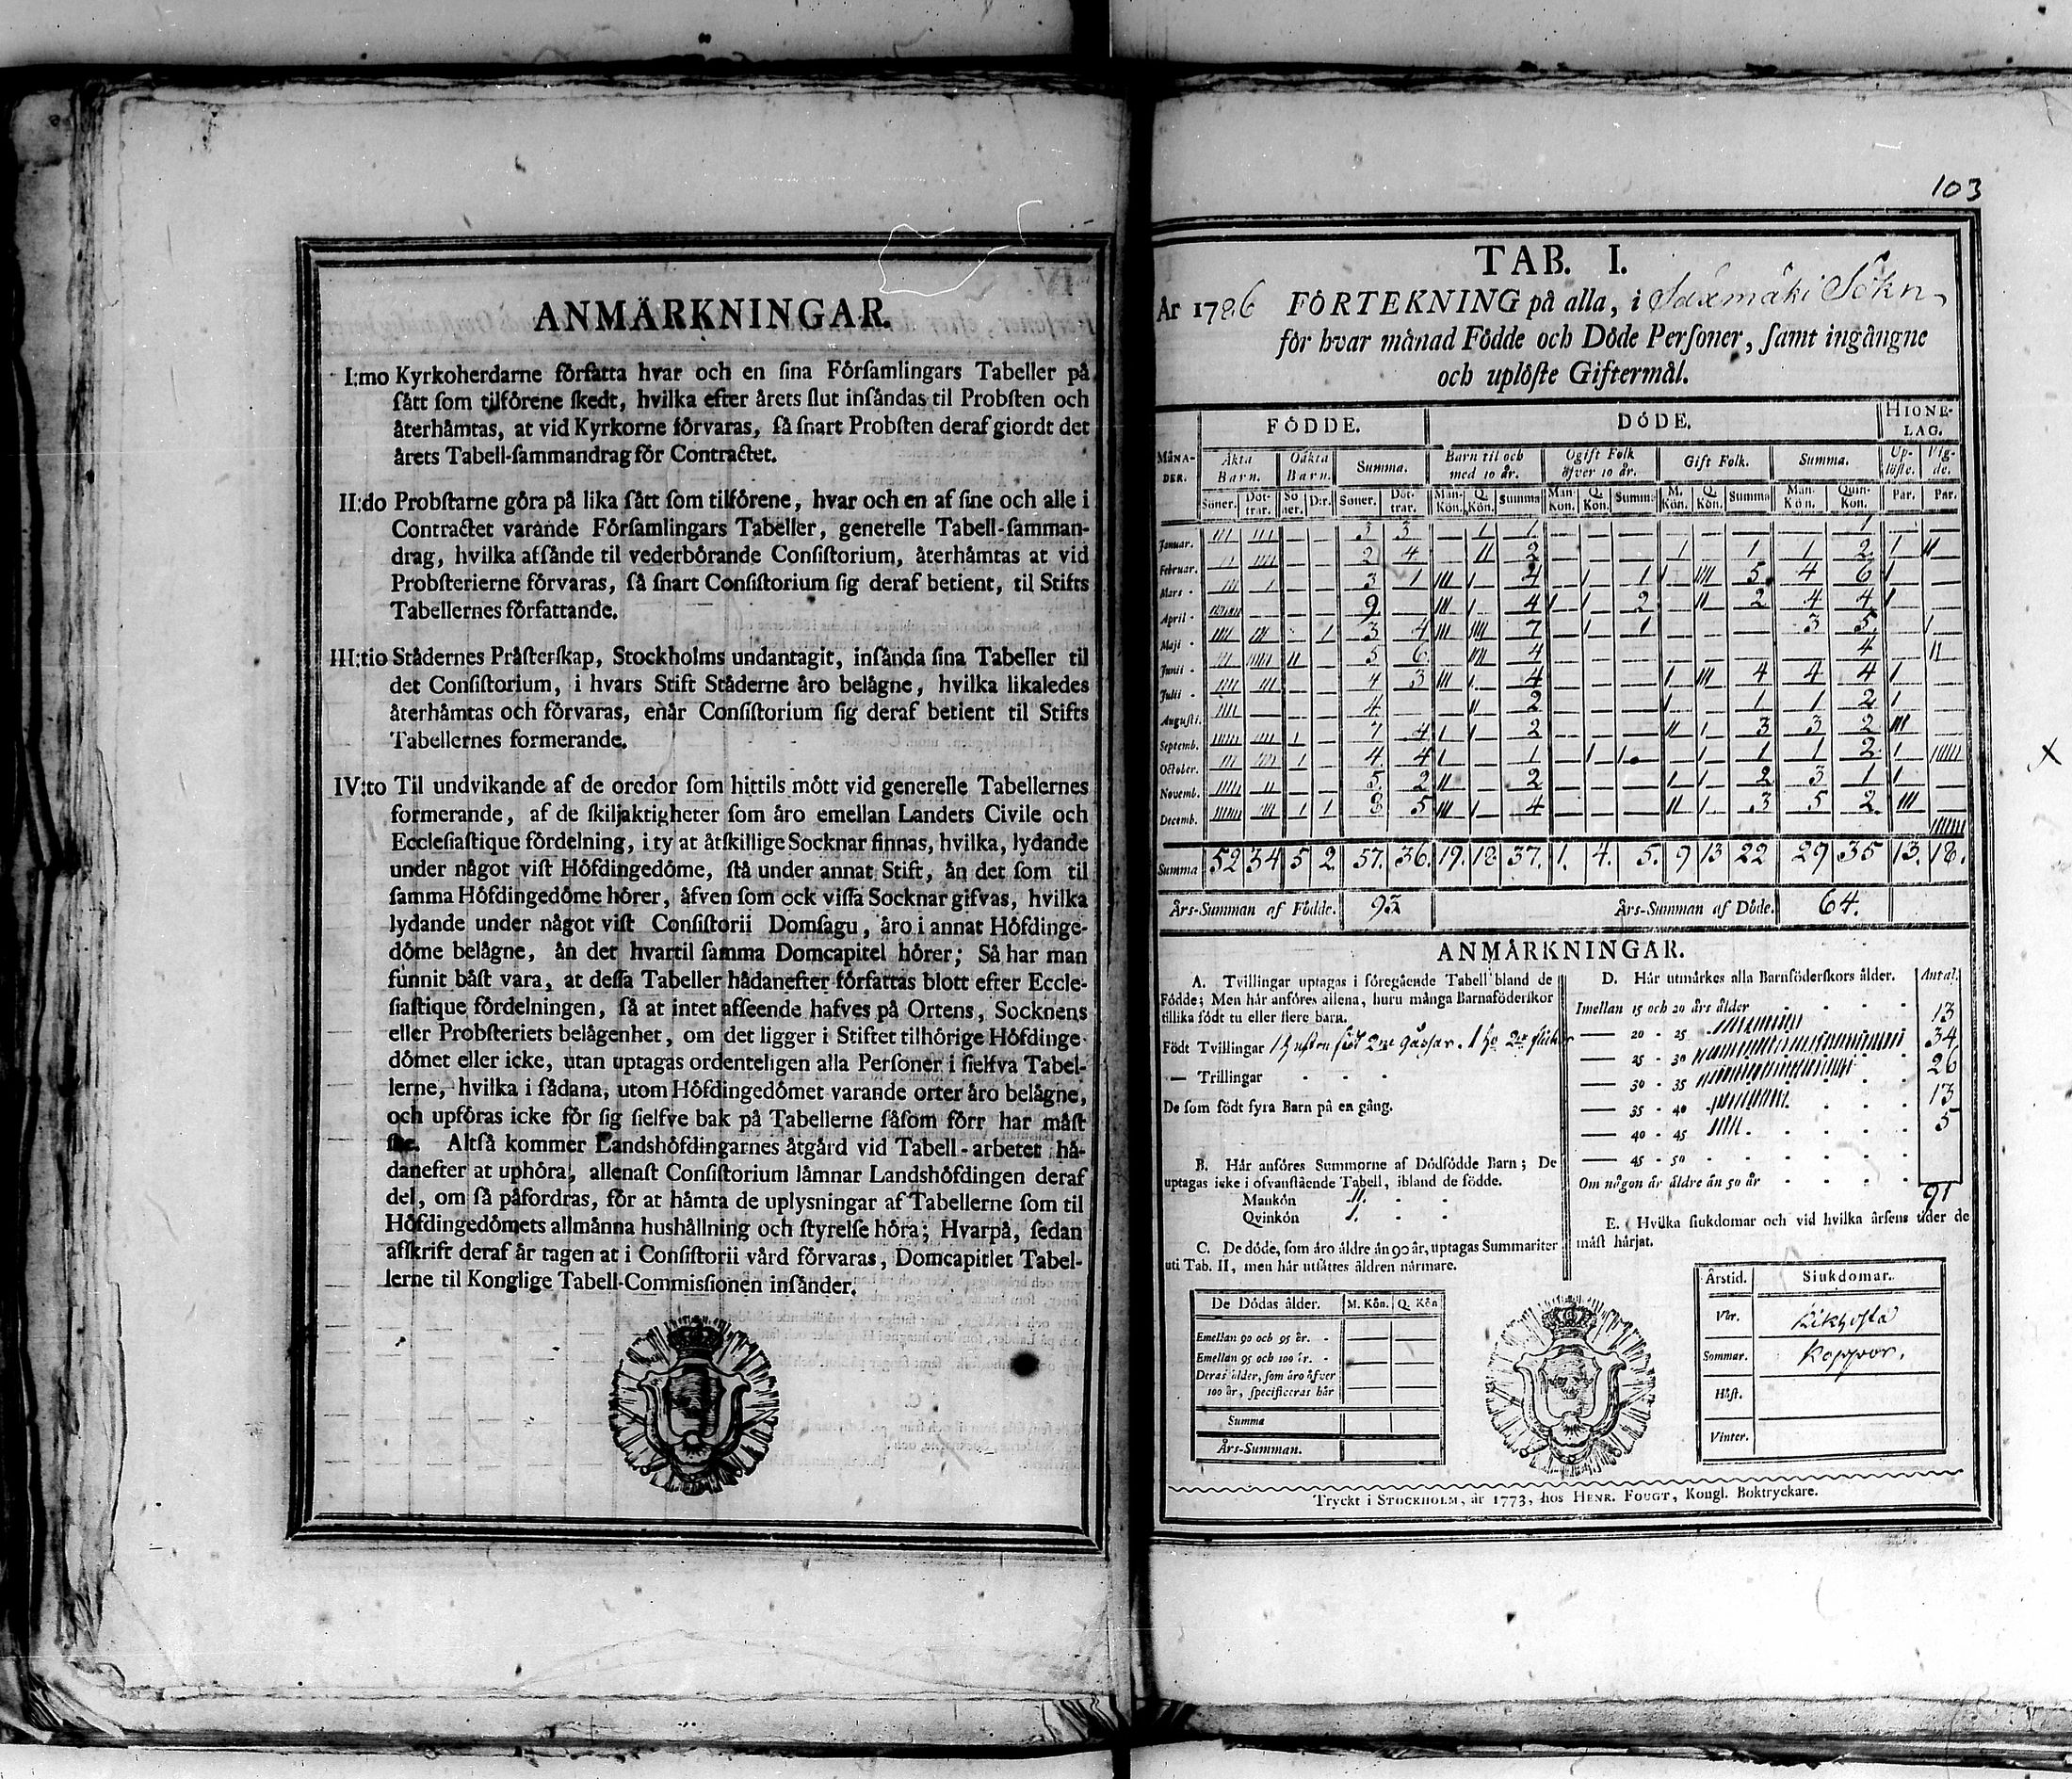 ANMÄRKNINGAR.
I:mo Kyrkoherdarne författa hvar och en sina Församlingars Tabeller på
sätt som tilförene skedt, hvilka efter årets slut insändas til Probsten och
återhämtas, at vid Kyrkorne förvaras, så snart Probsten deraf giordt det
årets Tabell-sammandrag för Contractet.
II:do Probstarne göra på lika sätt som tilförene, hvar och en af sine och alle i
Contractet varande Församlingars Tabeller, generelle Tabell-samman-
drag, hvilka afsände til vederbörande Consistorium, återhämtas at vid
Probsterierne förvaras, så snart Consistorium sig deraf betient, til Stifts
Tabellernes författande.
III:tio Städernes Prästerskap, Stockholms undantagit, insända sina Tabeller til
det Consistorium, i hvars Stift Städerne äro belägne, hvilka likaledes
återhämtas och förvaras, enär Consistorium sig deraf betient til Stifts
Tabellernes formerande.
IV:to Til undvikande af de oredor som hittils mött vid generelle Tabellernes
formerande, af de skiljaktigheter som äro emellan Landets Civile och
Ecclesiastique fördelning, i ty at åtskillige Socknar finnas, hvilka, lydande
under något vist Höfdingedöme, stå under annat Stift, än det som til
samma Höfdingedöme hörer, äfven som ock vissa Socknar gifvas, hvilka
lydande under något vist Consistorii Domsagu, äro i annat Höfdinge-
döme belägne, än det hvartil samma Domcapitel hörer; Så har man
funnit bäst vara, at dessa Tabeller hädanefter författas blott efter Eccle-
siastique fördelningen, så at intet afseende hafves på Ortens, Socknens
eller Probsteriets belägenhet, om det ligger i Stiftet tilhörige Höfdinge-
dömet eller icke, utan uptagas ordenteligen alla Personer i sielfva Tabel-
lerne, hvilka i sådana, utom Höfdingedömet varande orter äro belägne,
och upföras icke för sig sielfve bak på Tabellerne såsom förr har måst
ske. Altså kommer Landshöfdingarnes åtgärd vid Tabell-arbetet hä-
danefter at uphöra, allenast Consistorium lämnar Landshöfdingen deraf
del, om så påfordras, för at hämta de uplysningar af Tabellerne som til
Höfdingedömets allmänna hushållning och styrelse höra; Hvarpå, sedan
afskrift deraf är tagen at i Consistorii vård förvaras, Domcapitlet Tabel-
lerne til Konglige Tabell-Commissionen insänder.
103
TAB. I.
År 1786 FÖRTEKNING på alla, i Saxmäki Sökn
för hvar månad Födde och Döde Personer, samt ingångne
och uplöste Giftermål.
FÖDDE. DÖDE. HIONE-LAG.
MÅNA-DER. Äkta Barn. Oäkta Barn. Summa. Barn til och med 10 år. Ogift Folk öfver 10 år. Gift Folk. Summa. Up-löste. Vig-de.
Söner. Döt-trar. Sö ner. D:r. Söner. Döt-trar. Man-Kön. Q. Kön. Summa Man Kön. Q. Kön. Summa M. Kön. Q. Kön. Summa Man Kön. Quin-Kön. Par. Par.
Januar. III III — — 3 3 — I 1 — — — — — — — 1 — —
Februar. II IIII — — 2 4 — II 2 — — — I — 1 1 2 I II
Mars III I — — 3 1 III I 4 — I 1 I IIII 5 4 6 I —
April IIIIIIIII — — — 9 — III I 4 I I 2 — II 2 4 4 I —
Maji III III — I 3 4 III IIII 7 — I 1 — — — 3 5 — I
Junii III IIIIII II — 5 6 — IIII 4 — — — — — — — 4 — II
Julii IIII III — — 4 3 III I 4 — — — I III 4 4 4 I —
Augusti. IIII — — — 4 — — II 2 — — — I — 1 1 2 I —
Septemb. IIIIII IIII I — 7 4 I I 2 — — — II I 3 3 2 III —
October. III IIII I — 4 4 I — 1 — I 1 — I 1 1 2 I IIIIII
Novemb. IIIII II — — 5 2 II — 2 — — — I I 2 3 1 I —
Decemb. IIIIIII IIII I I 8 5 III I 4 — — — II I 3 5 2 III IIIIIII
Summa 52 34 5 2 57. 36. 19. 18 37. 1. 4. 5. 9 13 22 29 35 13. 18.
Års-Summan af Födde. 93 Års-Summan af Döde. 64.
ANMÄRKNINGAR.
A. Tvillingar uptagas i föregående Tabell bland de
Födde; Men här anföres allena, huru många Barnaföderskor
tillika födt tu eller flere barn.
Födt Tvillingar
— Trillingar
De som födt fyra Barn på en gång.
B. Här anföres Summorne af Dödfödde Barn; De
uptagas icke i ofvanstående Tabell, ibland de födde.
Mankön II.
Qvinkön I.
C. De döde, som äro äldre än 90 år, uptagas Summariter
uti Tab. II, men här utsättes åldren närmare.
De Dödas ålder. M. Kön. Q. Kön
Emellan 90 och 95 år. — —
Emellan 95 och 100 år. — —
Deras ålder, som äro öfver
100 år, specificeras här — —
Summa
Års-Summan.
D. Här utmärkes alla Barnföderskors ålder. Antal.
Imellan 15 och 20 års ålder
— 20 - 25 13
— 25 - 30 34
— 30 - 35 26
— 35 - 40 13
— 40 - 45 5
— 45 - 50
Om någon är äldre än 50 år
91
E. Hvilka siukdomar och vid hvilka årsens tider de
mäst härjat.
Årstid. Siukdomar.
Vår. Kikhosta
Sommar. Koppor.
Höst.
Vinter.
Tryckt i STOCKHOLM, år 1773, hos HENR. FOUGT, Kongl. Boktryckare.
X